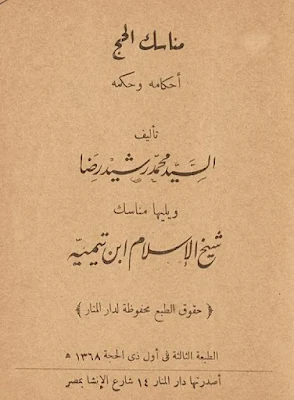 مناسك الحج
أحكامه وحكمه
تأليف
السيد محمد رشيد رضا
ويليها مناسك
شيخ الإسلام ابن تيمية
﴿ حقوق الطبع محفوظة لدار المنار ﴾
الطبعة الثالثة فى أول ذى الحجة ١٣٦٨ ه
أصدرتها دار المنار ١٤ شارع الإنشا بمصر